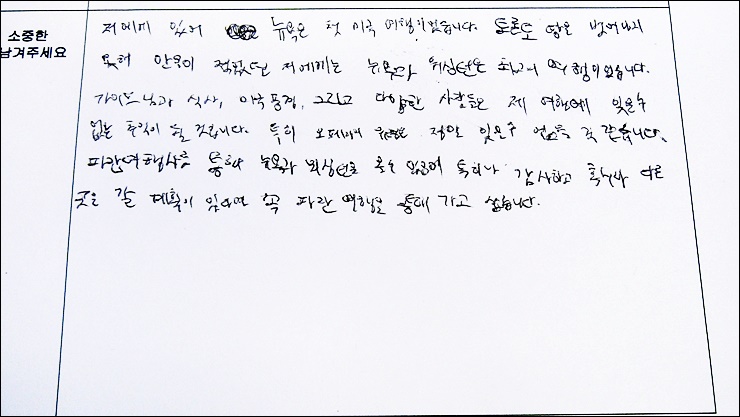 소중한
남겨주세요
저에게 있어 뉴욕은 첫 미국 여행이었습니다. 토론토 땅은 벗어나지
못해 안목이 좁았던 저에게는 뉴욕과 워싱턴은 최고의 여행이었습니다.
가이드님과 식사, 미국 풍경, 그리고 다양한 사람들은 제 여행에 잊을 수
없는 추억이 될 것입니다. 특히 정말 잊을 수 없을 것 같습니다.
파란여행사를 통해 뉴욕과 워싱턴을 올 수 있음에 감사하고 혹시나 다른
곳을 갈 계획이 있다면 꼭 파란 여행을 통해 가고 싶습니다.